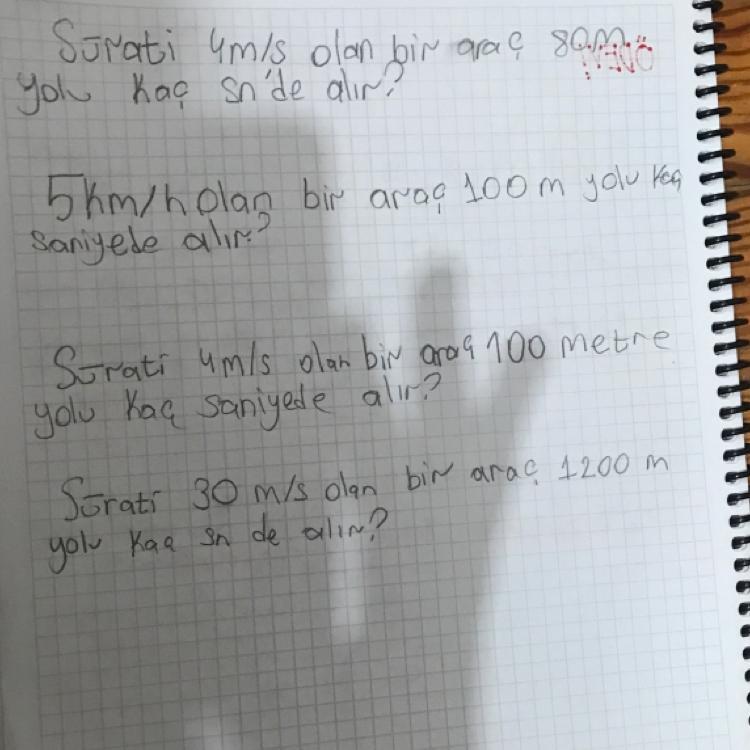 Sürati 4m/s olan bir araç 80m
yolu kaç sn'de alır?
5km/h olan bir araç 100 m yolu kaç
saniyede alır?
Sürati 4m/s olan bir araç 100 metre
yolu kaç saniyede alır?
Sürati 30 m/s olan bir araç 1200 m
yolu kaç sn de alır?